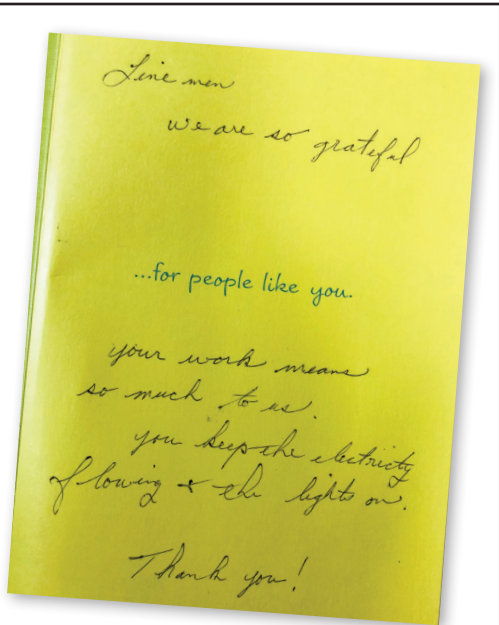 Line men
we are so grateful
...for people like you.
your work means
so much to us.
you keep the electricity
flowing & the lights on.
Thank you!